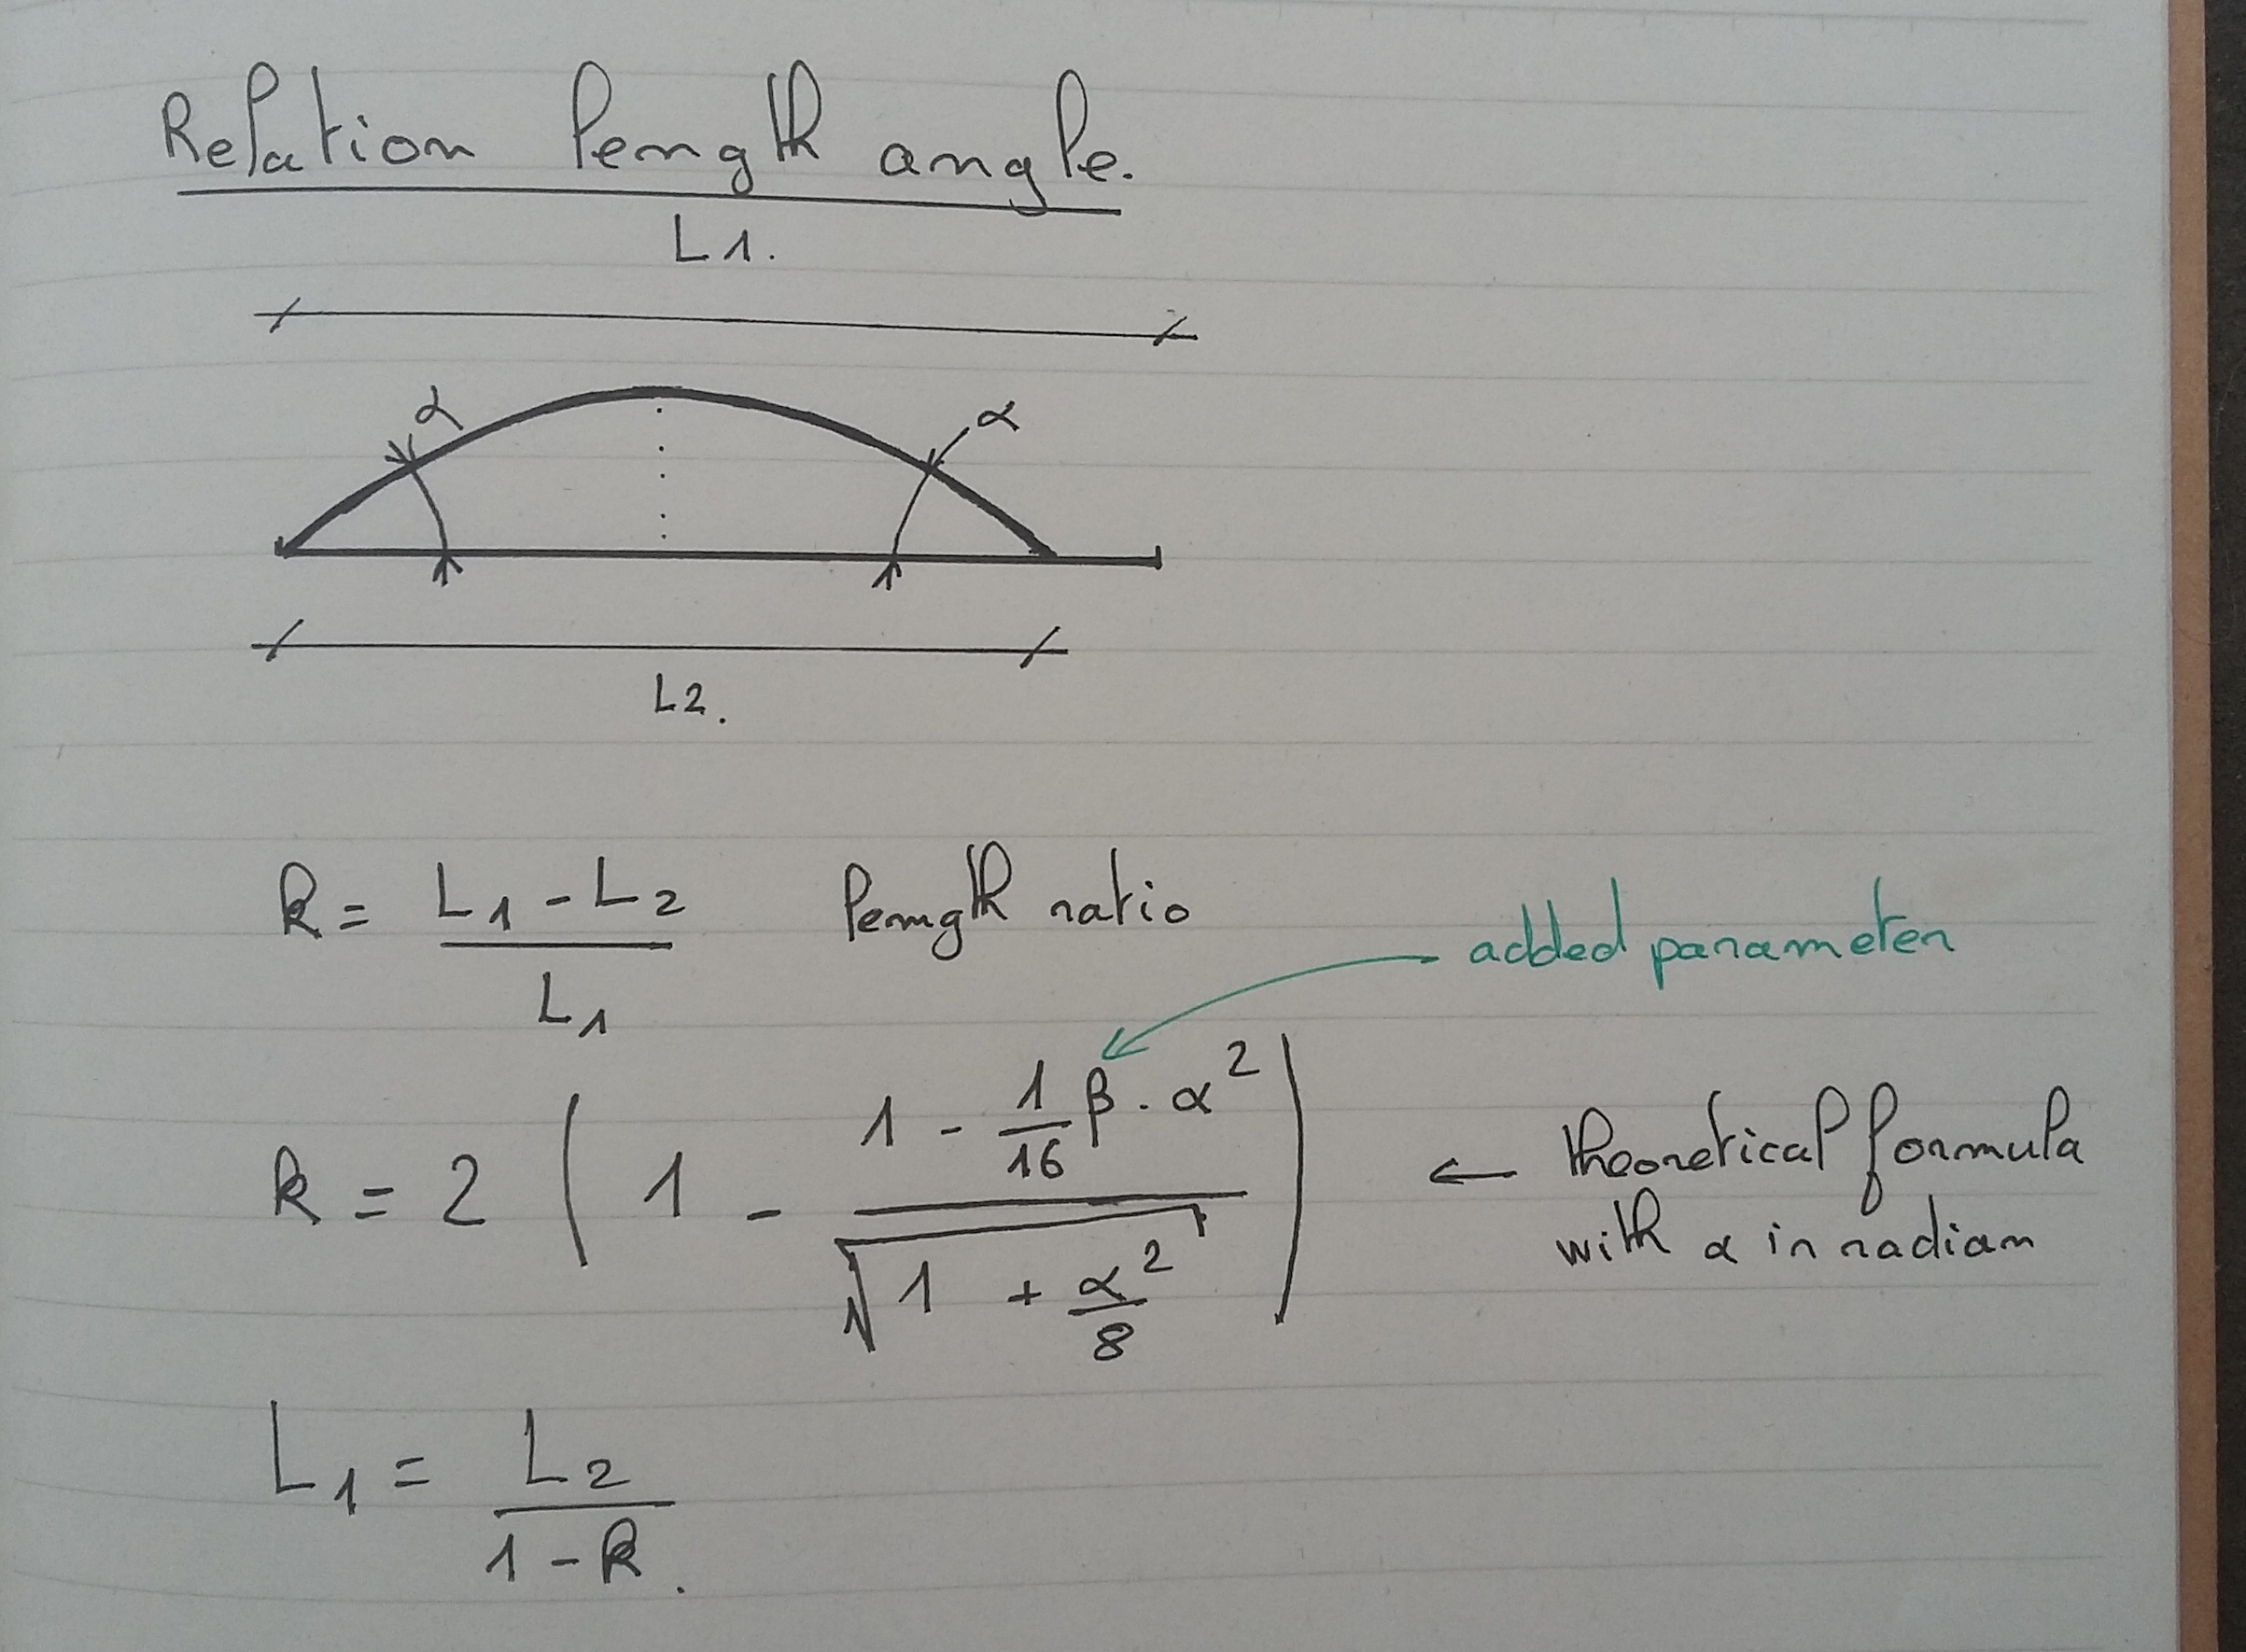 Relation length angle.
L1.
α α
L2.
k = (L1 - L2) / L1 length ratio
added parameter
k = 2 ( 1 - (1 - 1/16 β . α²) / √(1 + α²/8) ) ← theoretical formula
with α in radian
L1 = L2 / (1 - k) .